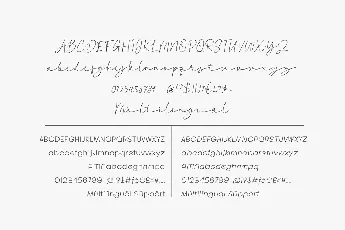 ABCDEFGHIJKLMNOPQRSTUVWXYZ
abcdefghijklmnopqrstuvwxyz
0123456789
Multilingual
ABCDEFGHIJKLMNOPQRSTUVWXYZ
abcdefghijklmnopqrstuvwxyz
0123456789
Multilingual Support
ABCDEFGHIJKLMNOPQRSTUVWXYZ
abcdefghijklmnopqrstuvwxyz
0123456789
Multilingual Support